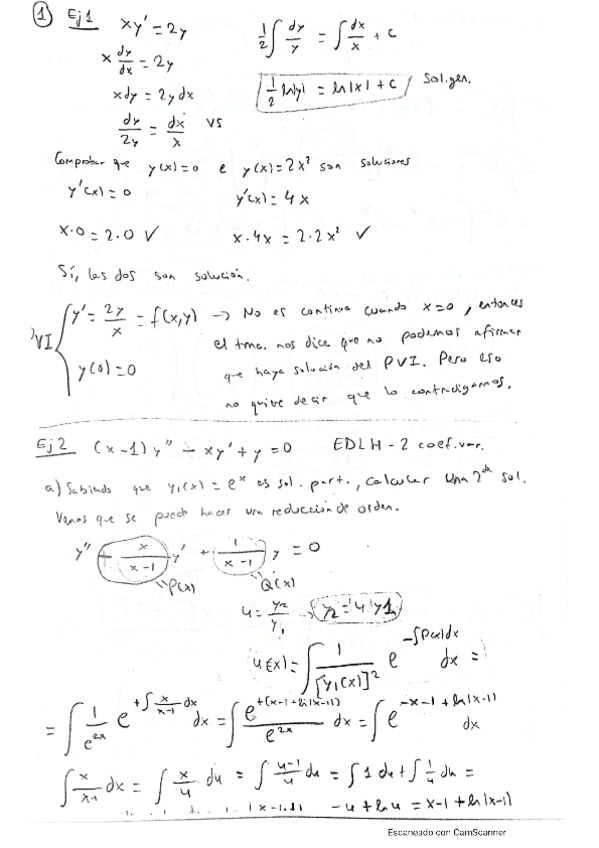 ① Ej1 xy' = 2y
x dy/dx = 2y
xdy = 2ydx
dy/2y = dx/x VS
1/2 ∫ dy/y = ∫ dx/x + C
1/2 ln|y| = ln|x| + C Sol.gen.
Comprobar que y(x)=0 e y(x)=2x² son soluciones
y'(x) = 0 y'(x) = 4x
x·0 = 2·0 ✓ x·4x = 2·2x² ✓
Sí, las dos son solución.
VI { y' = 2y/x = f(x,y) → No es continua cuando x=0, entonces
el tma. nos dice que no podemos afirmar
y(0) = 0 que haya solución del PVI. Pero eso
no quiere decir que lo contradigamos.
Ej2 (x-1)y'' - xy' + y = 0 EDLH-2 coef.var.
a) Sabiendo que y₁(x) = eˣ es sol. part., calcular una 2ª sol.
Vemos que se puede hacer una reducción de orden.
y'' - x/(x-1) y' + 1/(x-1) y = 0
"P(x) "Q(x)
u = y₂/y₁ → y₂ = u y₁
u(x) = ∫ 1/[y₁(x)]² e^(-∫P(x)dx) dx =
= ∫ 1/e^(2x) e^(+∫ x/(x-1) dx) dx = ∫ e^(+(x-1+ln|x-1|))/e^(2x) dx = ∫ e^(-x-1+ln|x-1|) dx
∫ x/(x-1) dx = ∫ x/u du = ∫ (u-1)/u du = ∫ 1 du + ∫ 1/u du =
-u + ln u = x-1 + ln|x-1|
Escaneado con CamScanner